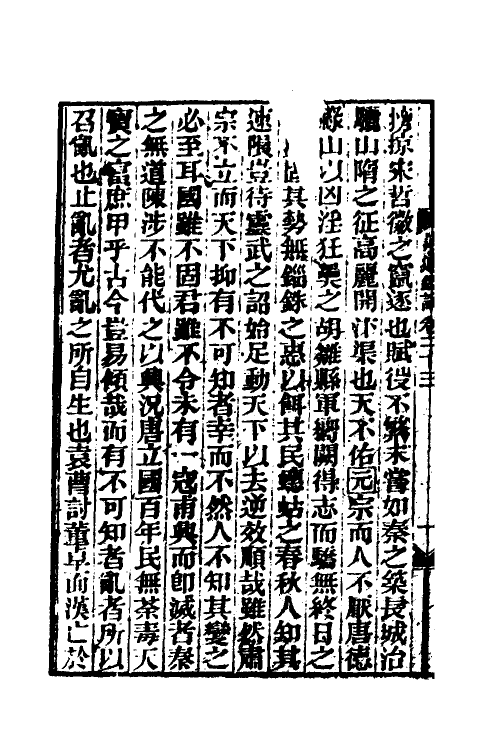 搒掠宋哲徽之竄逐也賦役不繁未嘗如秦之築長城治
驪山隋之征高麗開汴渠也天不佑元宗而人不厭唐德
祿山以凶淫狂臬之胡雛縣軍嚮闕得志而驕無終日之
其勢無錙銖之惠以餌其民蟪蛄之春秋人知其
速隕豈待靈武之詔始足動天下以去逆效順哉雖然肅
宗不立而天下抑有不可知者幸而不然人不知其變之
必至耳國雖不固君雖不令未有一寇甫興而卽滅者秦
之無道陳涉不能代之以興況唐立國百年民無荼毒天
寶之富庶甲乎古今豈易傾哉而有不可知者亂者所以
召亂也止亂者尤亂之所自生也袁曹討董卓而漢亡於
卷二十三